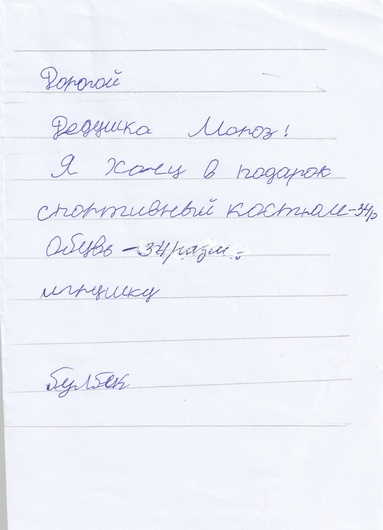 Дорогой
Дедушка Мороз!
Я хочу в подарок
спортивный костюм-34р
Обувь - 34 разм.
игрушку
Булбек